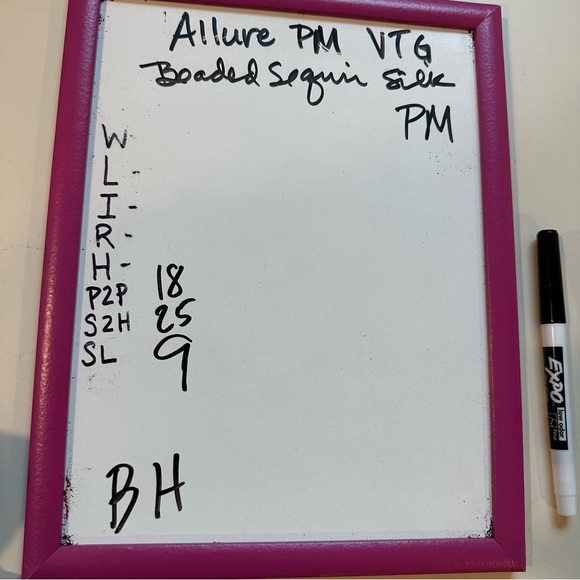 Allure PM VTG
Beaded Sequin Silk
PM
W
L -
I -
R -
H -
P2P 18
S2H 25
SL 9
BH
EXPO
low odor